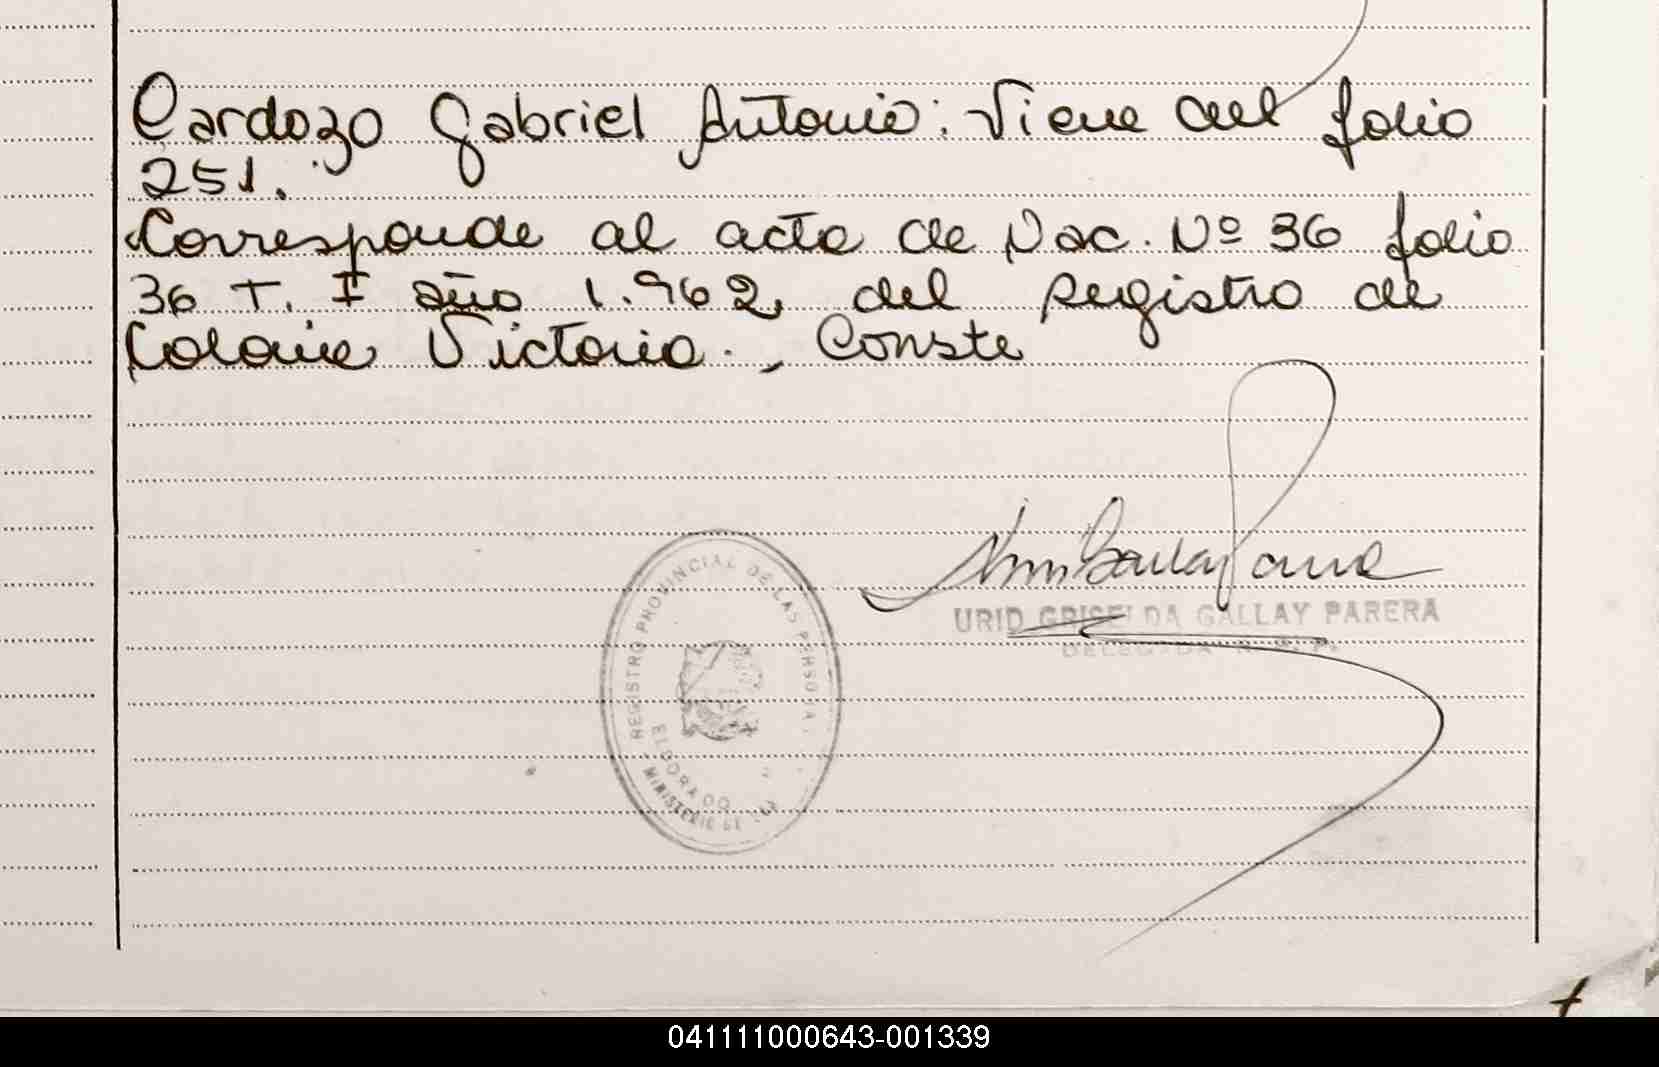 Cardozo Gabriel Antonio: Viene del folio
251.
Corresponde al acta de Nac. Nº 36 folio
36 T. I año 1.962, del Registro de
Colonia Victoria., Conste
URID GRISELDA GALLAY PARERA
DELEGADA R. P.
REGISTRO PROVINCIAL DE LAS PERSONAS
ELDORADO
MINISTERIO DE
041111000643-001339